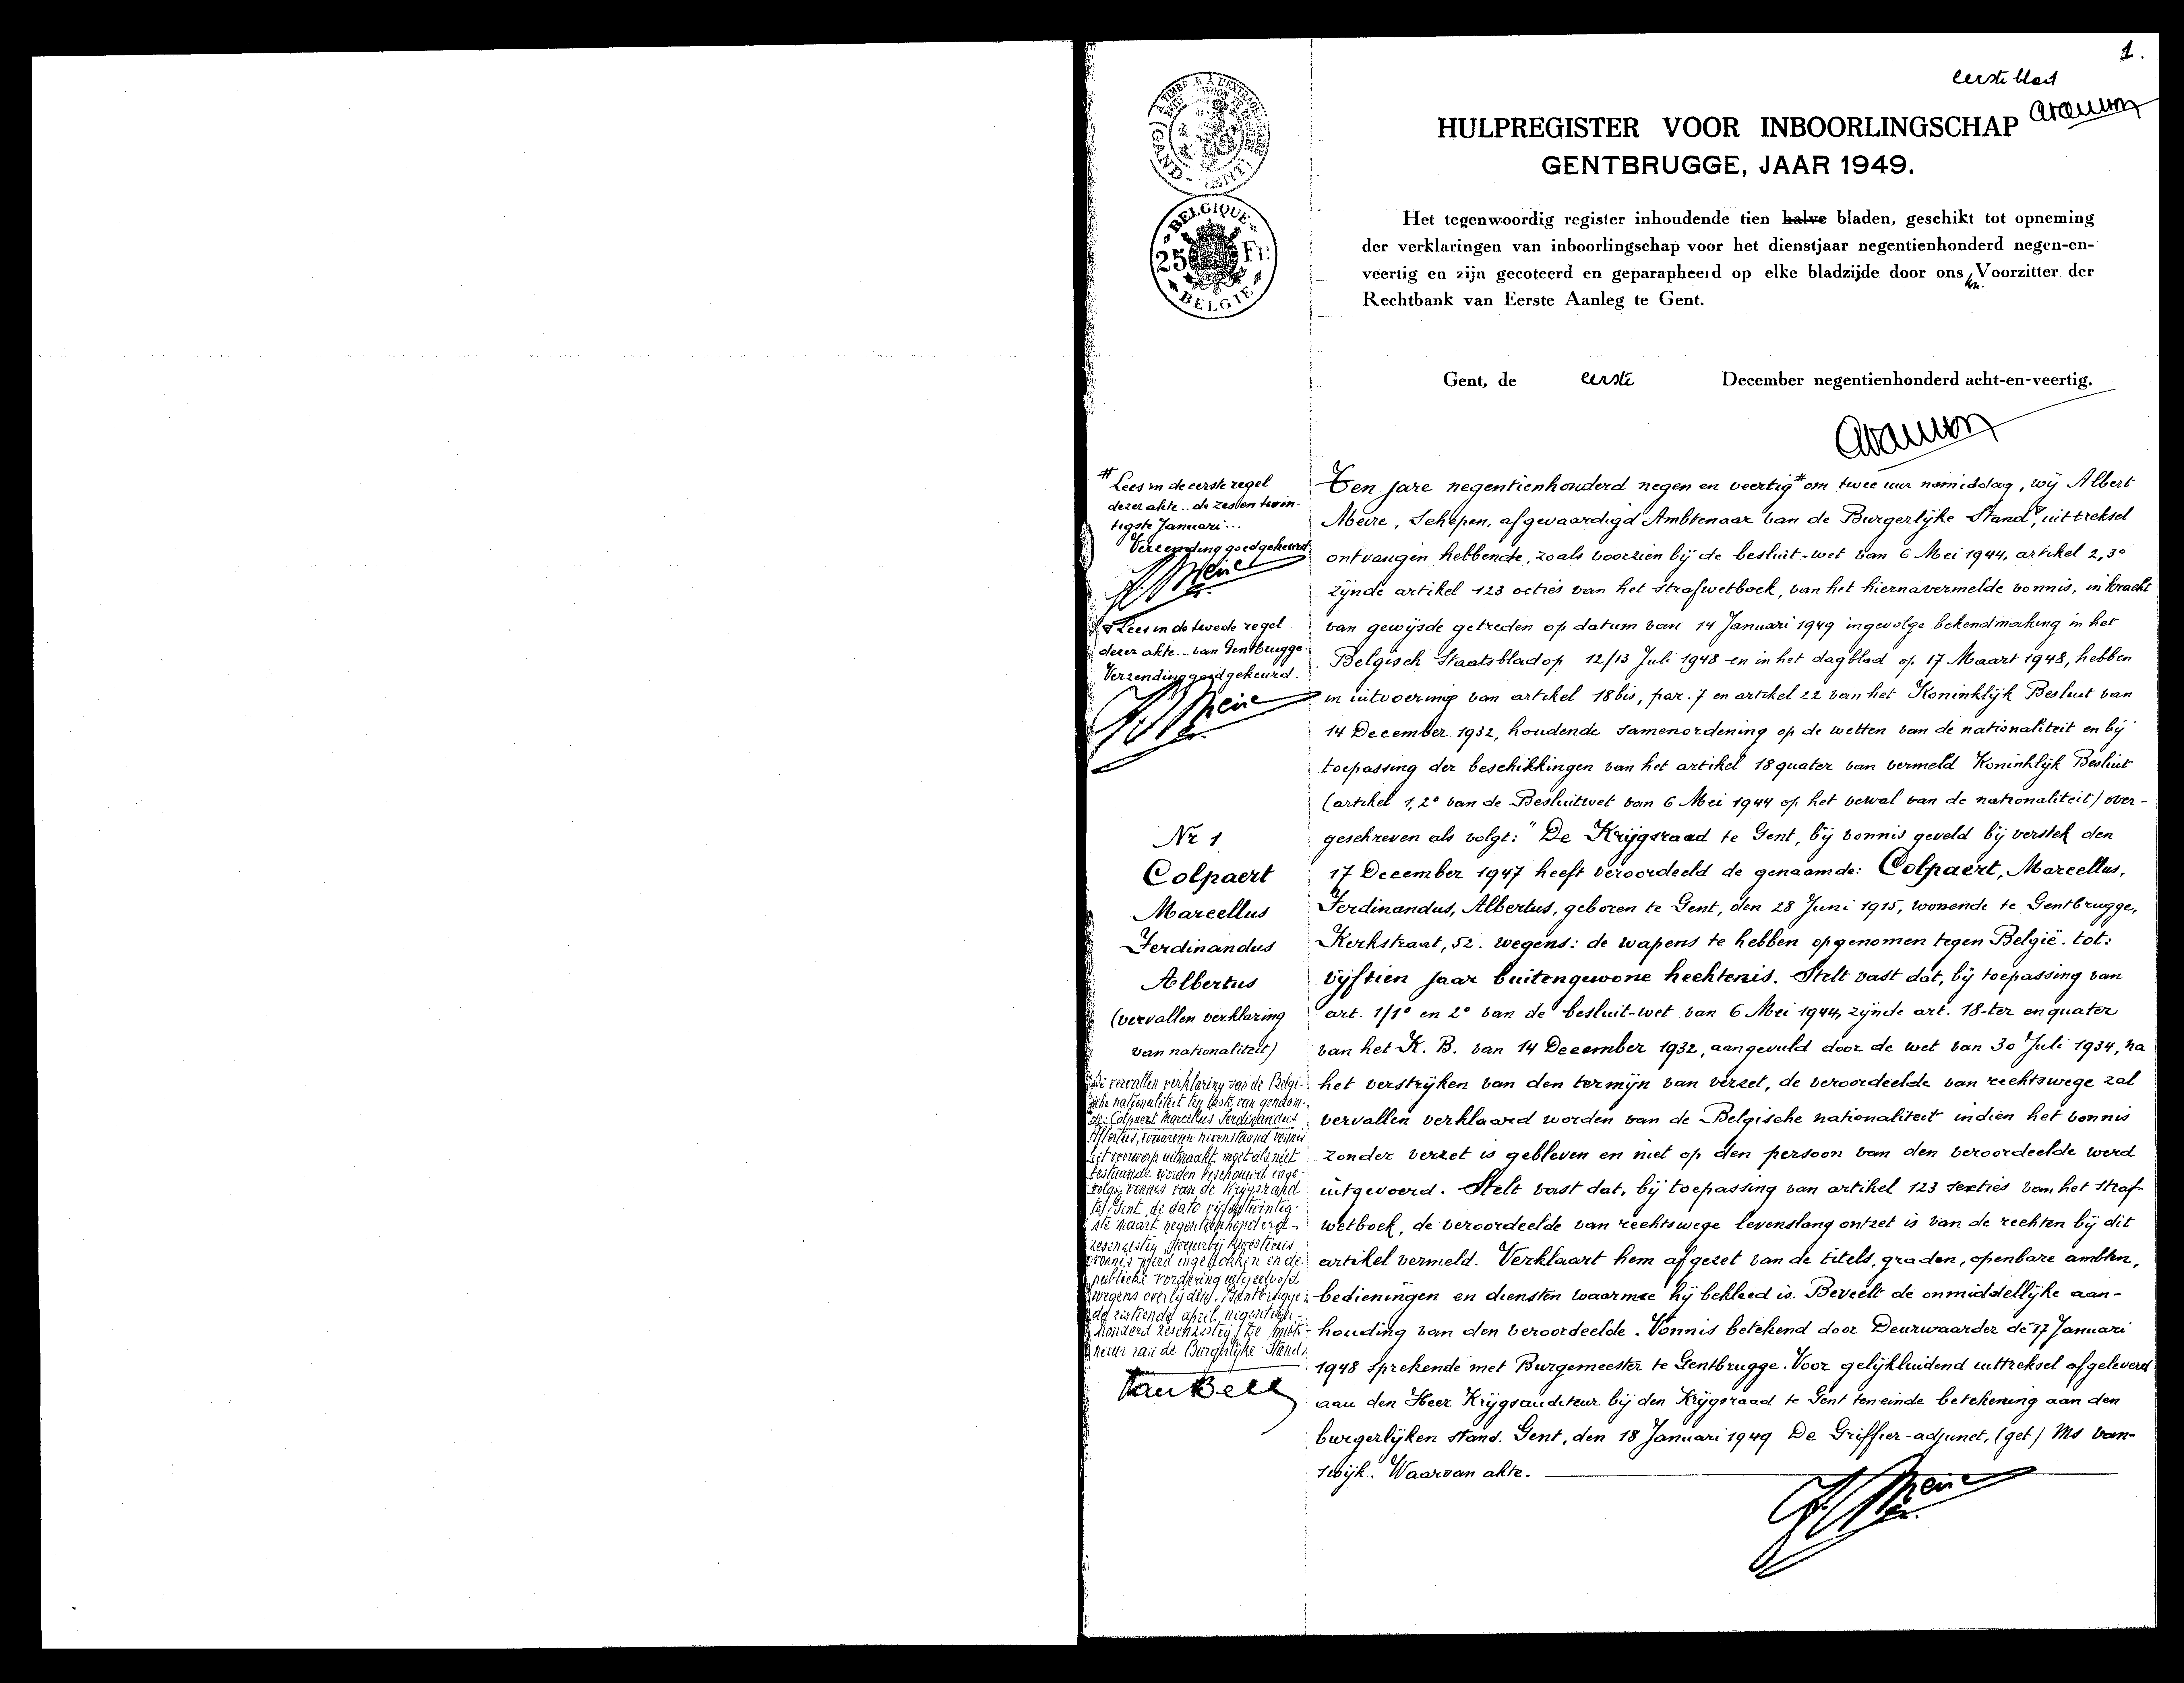 1.
eerste blad
HULPREGISTER VOOR INBOORLINGSCHAP
GENTBRUGGE, JAAR 1949.
Het tegenwoordig register inhoudende tien halve bladen, geschikt tot opneming
der verklaringen van inboorlingschap voor het dienstjaar negentienhonderd negen-en-
veertig en zijn gecoteerd en geparapheerd op elke bladzijde door ons, Voorzitter der
Rechtbank van Eerste Aanleg te Gent.
Gent, de eerste December negentienhonderd acht-en-veertig.
BELGIQUE
25 Fr.
BELGIE
# Lees in de eerste regel
dezer akte .. de zes en twin-
tigste Januari ...
Verzending goedgekeurd.
Lees in de tweede regel
dezer akte ... van Gentbrugge.
Verzending goedgekeurd.
Nr 1
Colpaert
Marcellus
Ferdinandus
Albertus
(vervallen verklaring
van nationaliteit)
De vervallen verklaring van de Belgi-
sche nationaliteit ten laste van genaam-
de: Colpaert Marcellus Ferdinandus
Albertus, waarvan nevenstaand vonnis
het voorwerp uitmaakt moet als niet
bestaande worden beschouwd inge-
volge vonnis van de Krijgsraad
te Gent, de dato vijfentwintig-
ste maart negentienhonderd
zesenzestig, waarbij kwestieus
vonnis werd ingetrokken en de
publieke vordering uitgedoofd
wegens overlijden. Gentbrugge,
de zestiende april negentien-
honderd zesenzestig. De Ambte-
naar van de Burgerlijke Stand,
Ten jare negentienhonderd negen en veertig # om twee uur namiddag, wij Albert
Meire, Schepen, afgevaardigd Ambtenaar van de Burgerlijke Stand, uittreksel
ontvangen hebbende, zoals voorzien bij de besluit-wet van 6 Mei 1944, artikel 2, 3°
zijnde artikel 123 octies van het Strafwetboek, van het hiernavermelde vonnis, in kracht
van gewijsde getreden op datum van 14 Januari 1949 ingevolge bekendmaking in het
Belgisch Staatsblad op 12/13 Juli 1948 en in het dagblad op 17 Maart 1948, hebben
in uitvoering van artikel 18 bis, par. 7 en artikel 22 van het Koninklijk Besluit van
14 December 1932, houdende samenordening op de wetten van de nationaliteit en bij
toepassing der beschikkingen van het artikel 18 quater van vermeld Koninklijk Besluit
(artikel 1, 2° van de Besluitwet van 6 Mei 1944 op het verval van de nationaliteit) over-
geschreven als volgt: "De Krijgsraad te Gent, bij vonnis geveld bij verstek den
17 December 1947 heeft veroordeeld de genaamde: Colpaert, Marcellus,
Ferdinandus, Albertus, geboren te Gent, den 28 Juni 1915, wonende te Gentbrugge,
Kerkstraat, 52. wegens: de wapens te hebben opgenomen tegen België. tot:
vijftien jaar buitengewone hechtenis. Stelt vast dat, bij toepassing van
art. 1/1° en 2° van de besluit-wet van 6 Mei 1944, zijnde art. 18-ter en quater
van het K. B. van 14 December 1932, aangevuld door de wet van 30 Juli 1934, na
het verstrijken van den termijn van verzet, de veroordeelde van rechtswege zal
vervallen verklaard worden van de Belgische nationaliteit indien het vonnis
zonder verzet is gebleven en niet op den persoon van den veroordeelde werd
uitgevoerd. Stelt vast dat, bij toepassing van artikel 123 sexties van het straf-
wetboek, de veroordeelde van rechtswege levenslang ontzet is van de rechten bij dit
artikel vermeld. Verklaart hem afgezet van de titels, graden, openbare ambten,
bedieningen en diensten waarmee hij bekleed is. Beveelt de onmiddellijke aan-
houding van den veroordeelde. Vonnis betekend door Deurwaarder de 17 Januari
1948 sprekende met Burgemeester te Gentbrugge. Voor gelijkluidend uittreksel afgeleverd
aan den Heer Krijgsauditeur bij den Krijgsraad te Gent teneinde betekening aan den
burgerlijken stand. Gent, den 18 Januari 1949 De Griffier-adjunct, (get) Ms Van-
swijk. Waarvan akte.